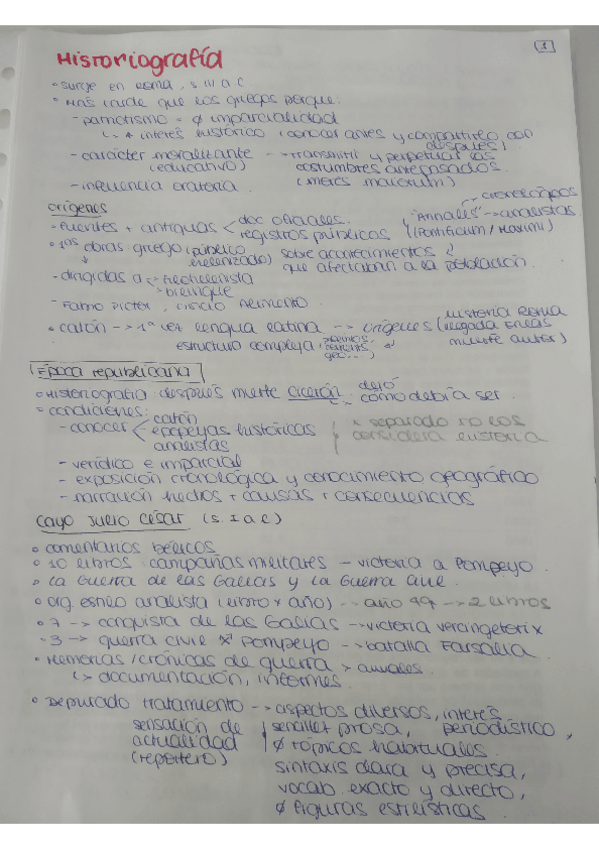 1
Historiografía
• surge en roma, s III a C
• Más tarde que los griegos porque:
- patriotismo = ∅ imparcialidad
↳ + interés histórico (conocer antes y compartirlo con después)
- carácter moralizante (educativo) --> transmitir y perpetuar las costumbres antepasados. (mores maiorum)
- influencia oratoria
orígenes
• Fuentes + antiguas < doc oficiales. registros públicos "Annales" --> analistas → cronológicos (Pontificum / Maximi)
• 1as obras griego (público helenizado) sobre acontecimientos que afectaban a la población.
• dirigidas a < bilingüe
• Fabio Pictor, Cincio Alimento.
• catón --> 1ª vez lengua latina --> orígenes (historia roma llegada Eneas muerte autor)
estructura compleja
Época republicana
• Historiografía después muerte cicerón dejó cómo debía ser.
• condiciones:
- conocer < catón epopeyas históricas analistas
* separado no los considera historia
- verídico e imparcial
- exposición cronológica y conocimiento geográfico
- narración hechos + causas + consecuencias
Cayo Julio César (s. I a C)
• comentarios bélicos
• 10 libros campañas militares - victoria a Pompeyo.
• La Guerra de las Galias y La Guerra Civil.
• org. estilo analista (libro x año) -- año 49 --> 2 libros
• 7 --> conquista de las Galias --> victoria vercingetorix
• 3 --> guerra civil x Pompeyo --> batalla Farsalia.
• Memorias / crónicas de guerra > anuales.
↳ documentación, informes.
• Depurado tratamiento --> aspectos diversos, interés
sensación de actualidad (reportero)
sencillez prosa, periodístico,
∅ tópicos habituales.
sintaxis clara y precisa,
vocab. exacto y directo,
∅ figuras estilísticas.